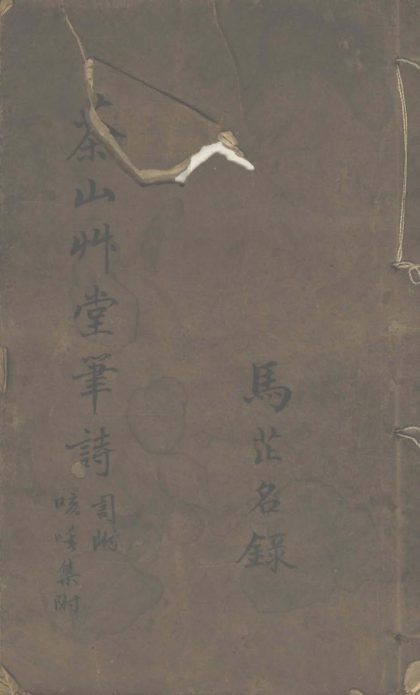 馬芷名錄
茶山艸堂筆詩
咳唾集附